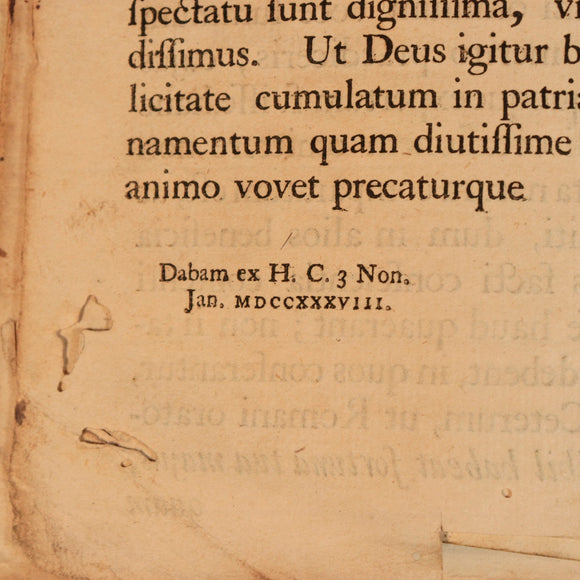 ſpectatu ſunt digniſſima, vi
diſſimus. Ut Deus igitur b
licitate cumulatum in patria
namentum quam diutiſſime
animo vovet precaturque
Dabam ex H. C. 3 Non.
Jan. MDCCXXXVIII.